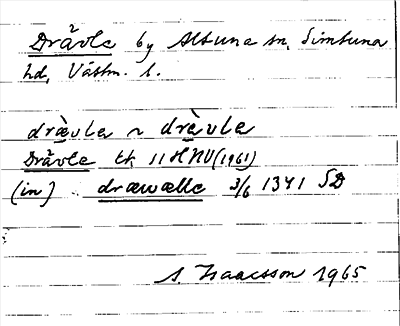 Drävle by Altuna sn, Simtuna
hd, Västm. l.
drævla ~ drævla
Drävle tk 11H NV (1961)
(in) dræwælle 3/6 1341 SD
S. Isaacsson 1965